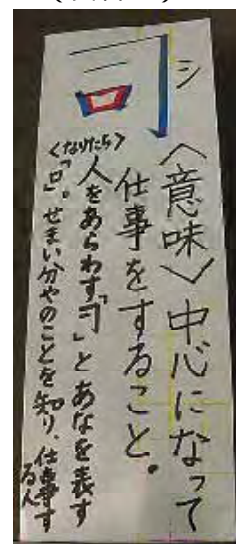 司
シ
〈意味〉中心になって
仕事をすること。
〈なりたち〉
人をあらわす「𠃌」とあなを表す
「口」。せまい分やのことを知り、仕事す
る人